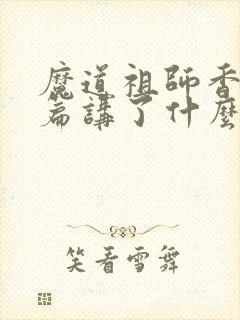 魔道祖師香
篇講了什麼
笑看雪舞